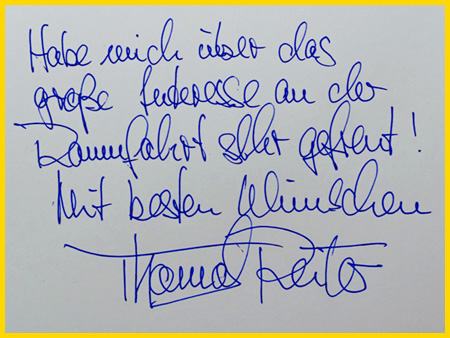 Habe mich über das
große Interesse an der
Raumfahrt sehr gefreut!
Mit besten Wünschen
Thomas Reiter